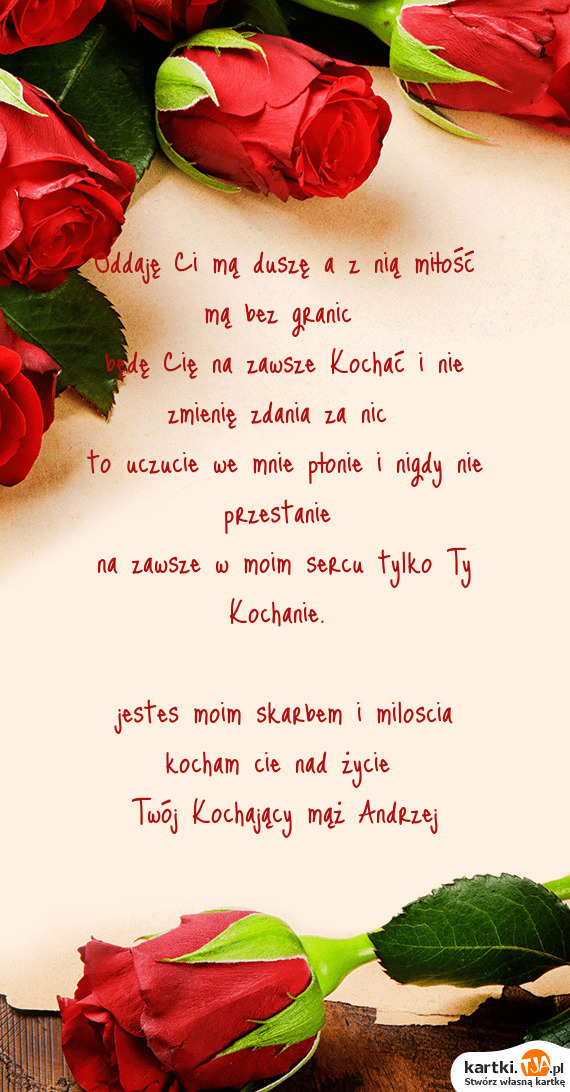 Oddaję Ci mą duszę a z nią miłość
mą bez granic
będę Cię na zawsze Kochać i nie
zmienię zdania za nic
to uczucie we mnie płonie i nigdy nie
przestanie
na zawsze w moim sercu tylko Ty
Kochanie.
jestes moim skarbem i miloscia
kocham cie nad życie
Twój Kochający mąż Andrzej
kartki.TJA.pl
Stwórz własną kartkę